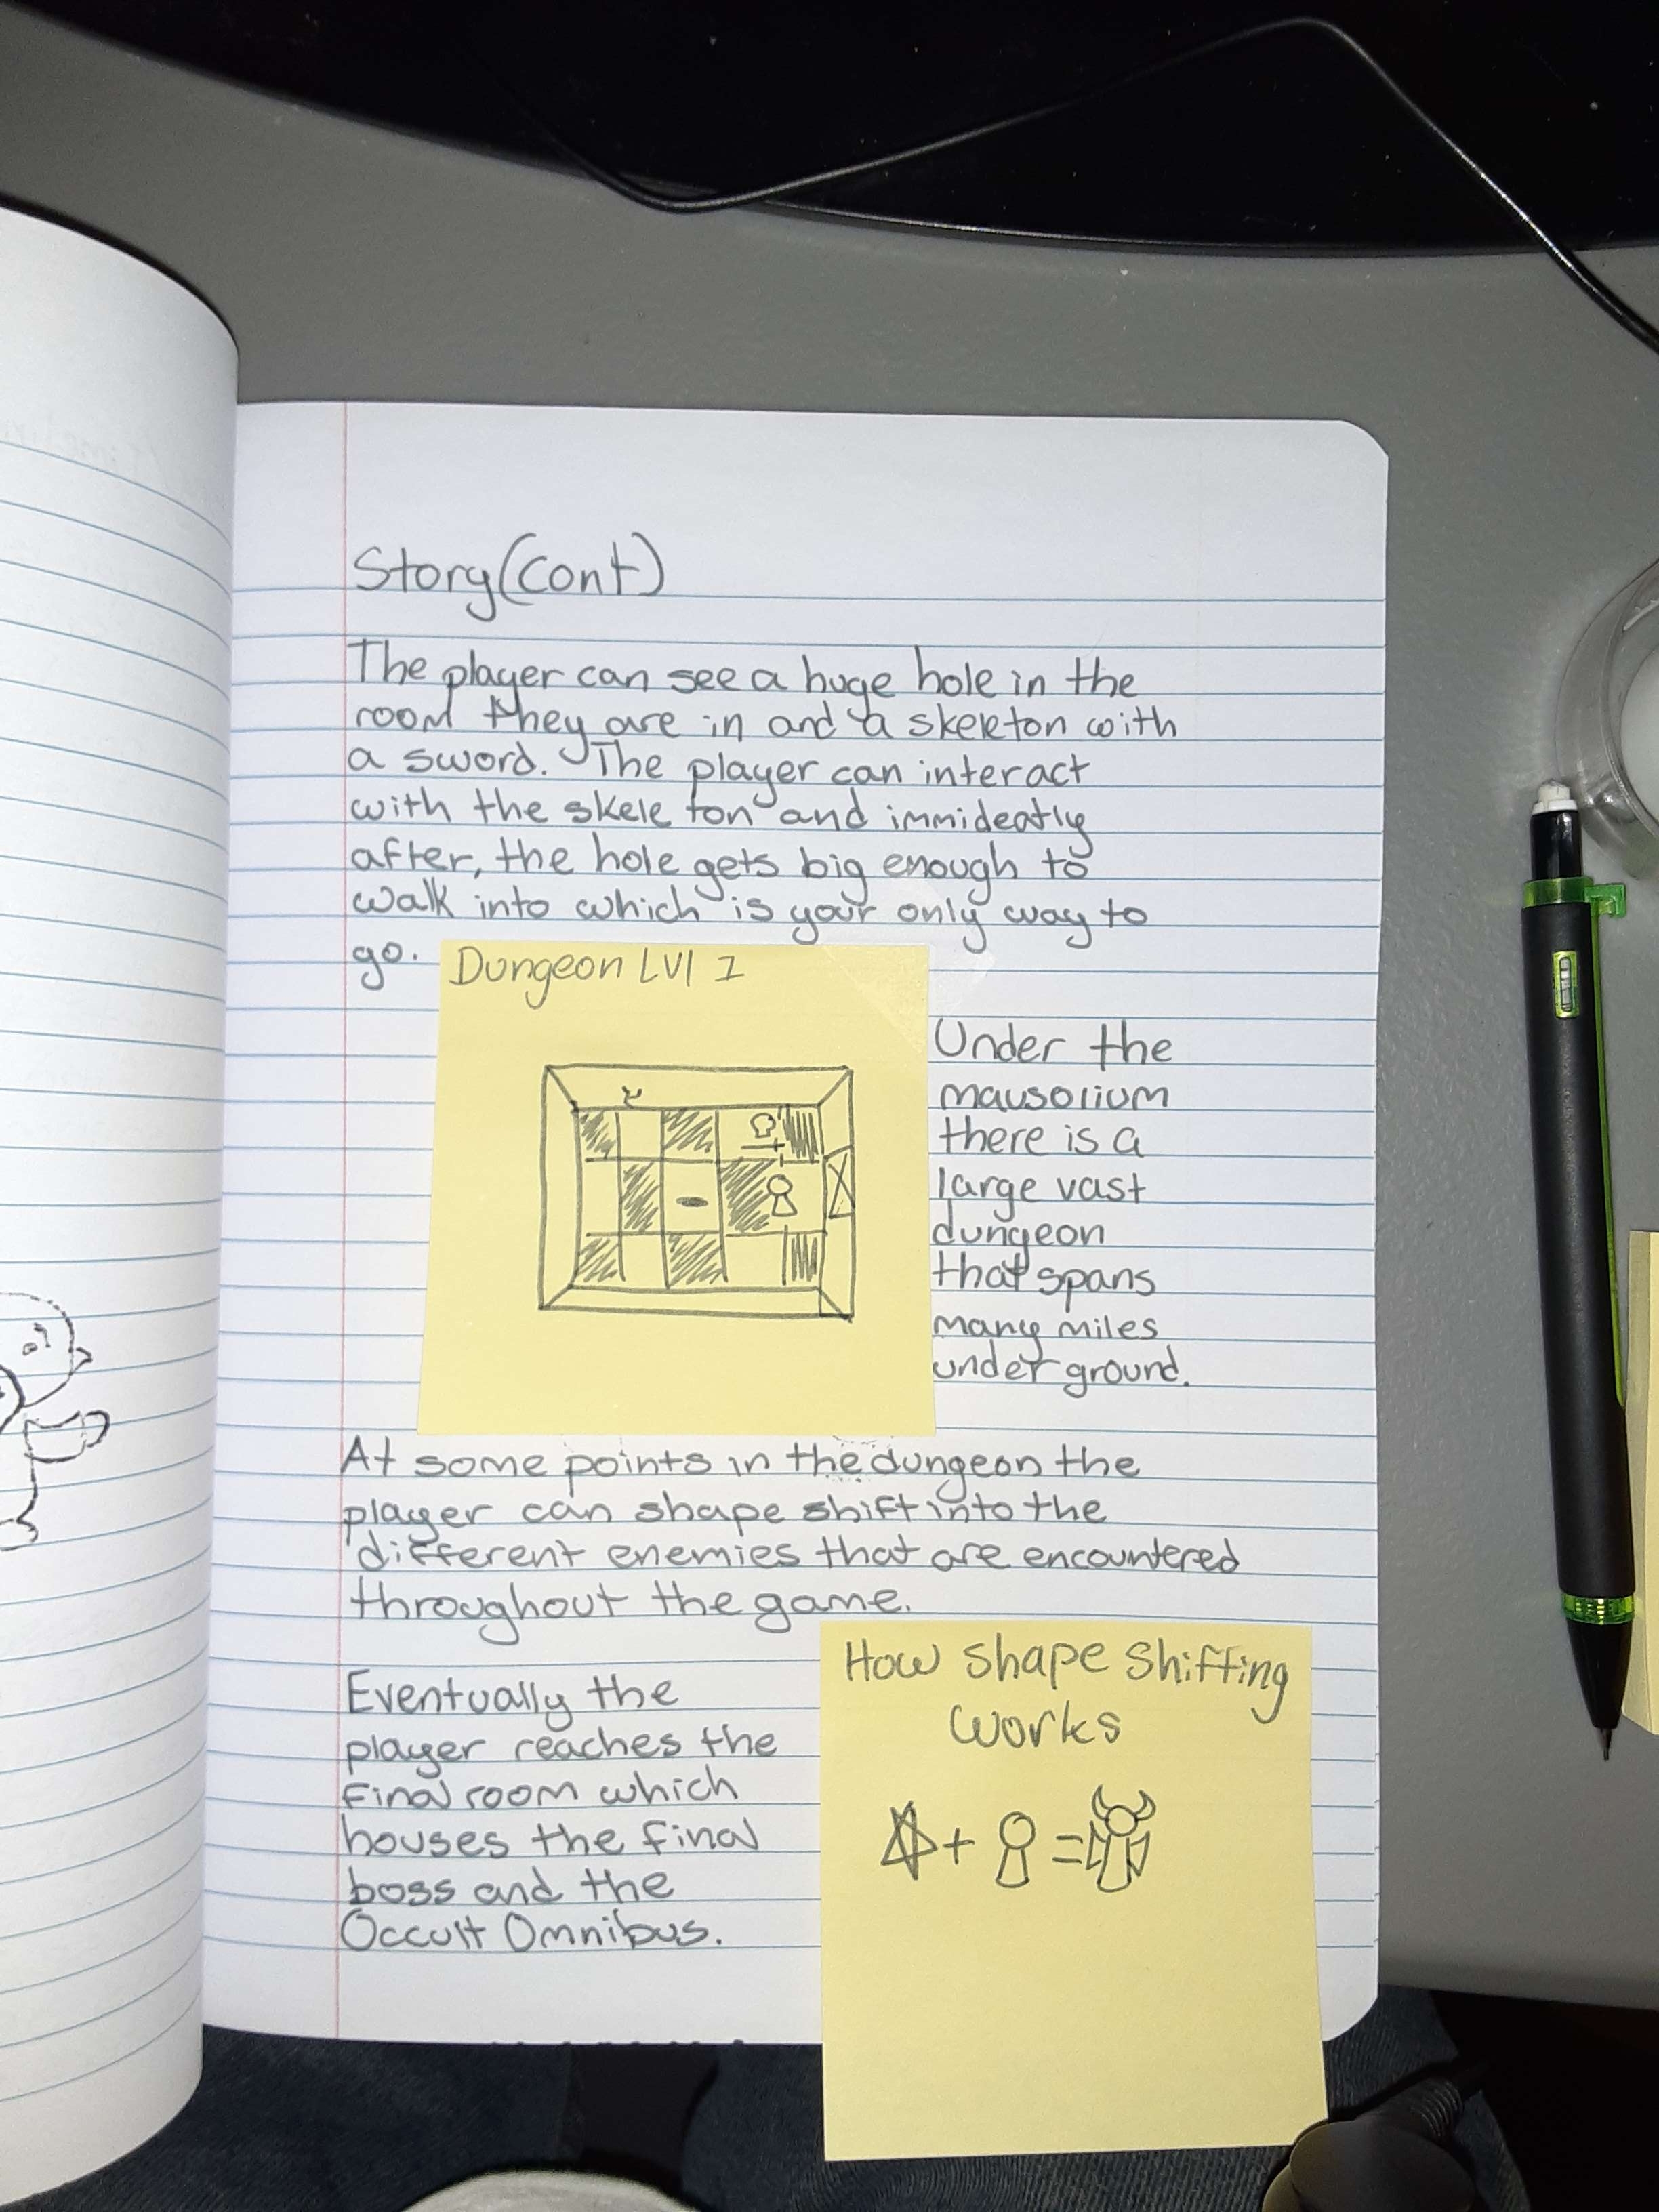 Story(Cont)
The player can see a huge hole in the
room they are in and a skeleton with
a sword. The player can interact
with the skele ton and immideatly
after, the hole gets big enough to
walk into which is your only way to
go.
Dungeon Lvl 1
Under the
mausolium
there is a
large vast
dungeon
that spans
many miles
under ground.
At some points in the dungeon the
player can shape shift into the
different enemies that are encountered
throughout the game.
Eventually the
player reaches the
final room which
houses the final
boss and the
Occult Omnibus.
How shape shifting
works
+ =